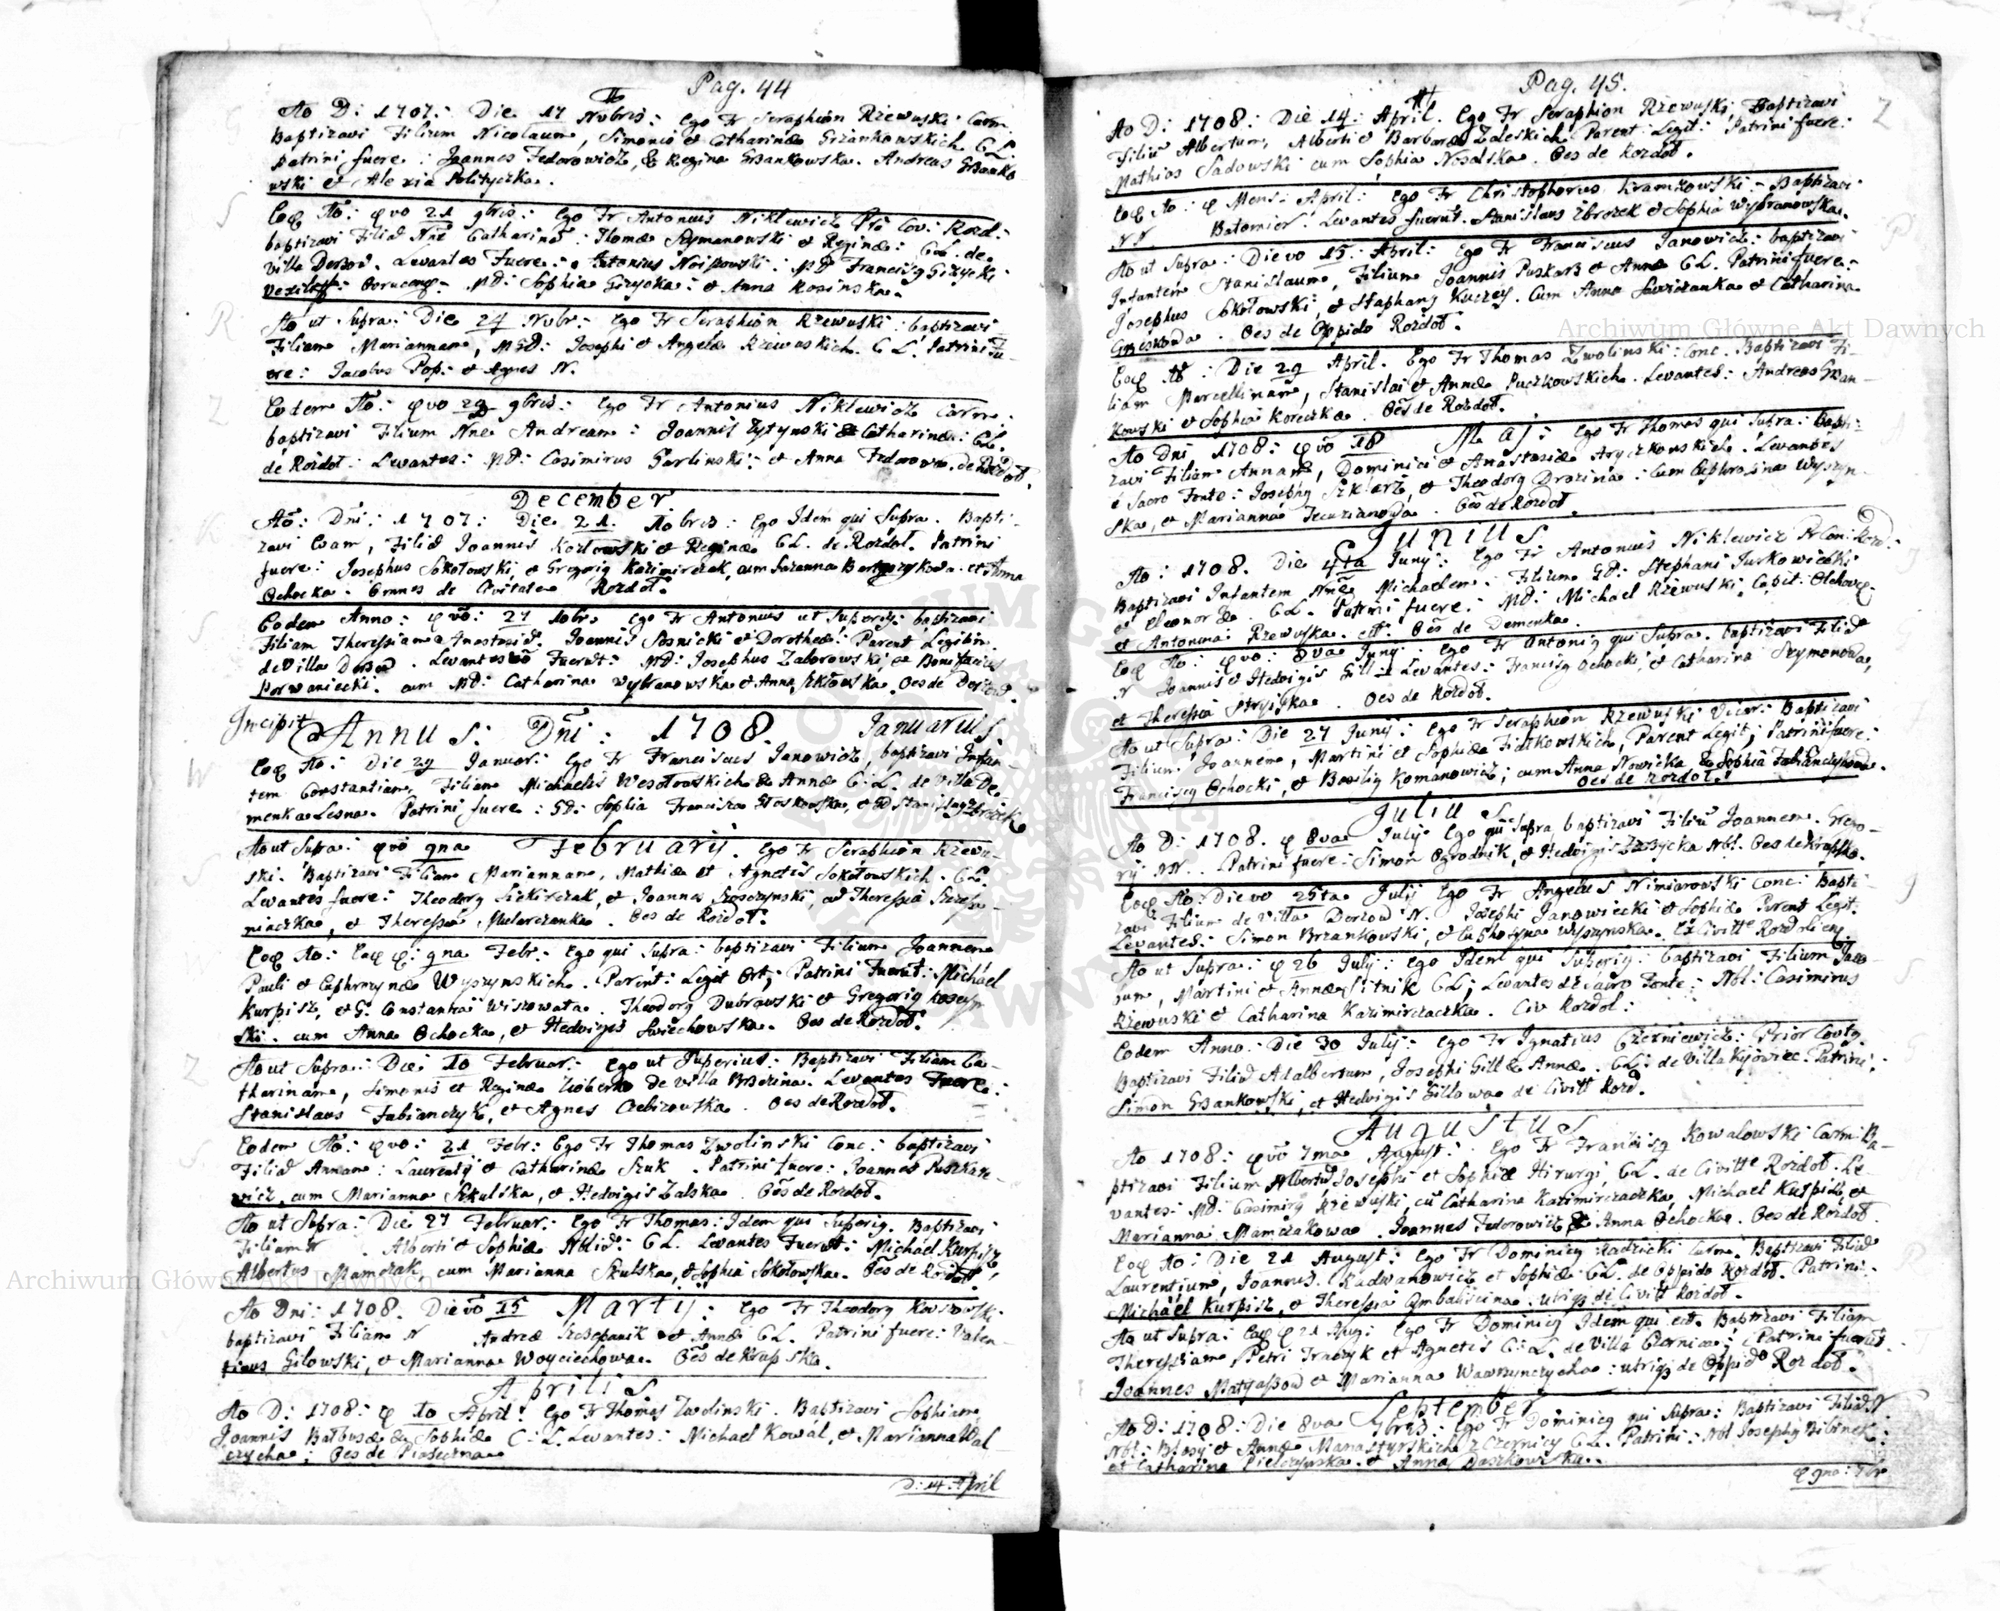 Pag. 44
Ao D: 1707: Die 17 Nvbris: Ego Fr Seraphion Rzewuski Carm:
Baptizavi Filium Nicolaum, Simonis et Catharinæ Grzankowskich CL.
Patrini fuere: Joannes Fedorowicz, & Regina Grzankowska. Andreas
wski et Alexia Polityczka.
Eoq Ao: q vo 21 9bris: Ego Fr Antonius Niklewicz Cov: Rozd:
baptizavi Filiã Nñe Catharinã: Thomæ Szymanowski et Reginæ: CL. de
villa Derzow. Levantes Fuere: Antonius MD Francisq Gizycki
MD: Sophia Gizycka: et Anna Kosinska.
Ao ut Supra: Die 24 Nvbr: Ego Fr Seraphion Rzewuski: baptizavi
Filiam Mariannam, MGD: Josephi et Angelæ Rzewuskich. CL. Patrini Fu-
ere: Jacobus Pop: et Agnes N.
Eodem Ao: q vo 29 9bris: Ego Fr Antonius Niklewicz Carm:
baptizavi Filium Nne Andream: Joannis Zytynski & Catharinæ: CL.
de Rozdoł: Levantes: MD: Casimirus Garlinski: et Anna Fedorowa de Rozdoł.
December
Ao: Dni: 1707: Die 21. Xbris: Ego Idem qui Supra. Bapti-
zavi Evam, Filiã Joannis Kozłowski et Reginæ CL. de Rozdoł. Patrini
fuere: Josephus Sokołowski, et Gregoriq Kazimirczak, cum Zuzanna et Anna
Ochocka. Omnes de Civitate Rozdoł.
Eodem Anno: q vo: 27 Xobr: Ego Fr Antonius ut Superiq: baptizavi
Filiam Theressiam Anastasiã. Joannis Sosnicki et Dorotheæ: Parent Legitim.
de Villa Derzow. Levantes Fuerũt: MD: Josephus Zaborowski, et Bonifacius
Porwaniecki. cum MD: Catharina Wybranowska et Anna Szkłowska. Oes de Derzow.
Incipit Annus: Dñi: 1708. Januarius
Eoq Ao: Die 29 Januar: Ego Fr Franciscus Janowicz, baptizavi Infan-
tem Constantiam, Filiam Michaelis Wesołowskich & Annæ C:L. de Villa De-
menka Lesna. Patrini fuere: GD: Sophia Francisca et GD Stanislaq Zbrozek
Ao ut Supra: q vo 9na Februarij. Ego Fr Seraphion Rzewu-
ski. Baptizavi Filiam Mariannam, Mathiæ et Agnetis Sokołowskich. CL.
Levantes fuere: Theodorq Siekirczak, et Joannes Szosczynski, cũ Theressia
niaczka, et Theressia Mularczanka. Oes de Rozdoł.
Eoq Ao: Eoq q: 9na Febr: Ego qui Supra: baptizavi Filium Joannem
Pauli et Ephrozynæ Wyszynskich. Parent: Legit Ort; Patrini Fuerũt: Michael
Kurpisz, et G. Constantia Wiszowata. Theodorq Dubrowski et Gregoriq
ski. cum Anna Ochocka, et Hedvigis Swiechowska. Oes de Rozdoł.
Ao ut Supra: Die 10 Februar: Ego ut Superius: Baptizavi Filiam Ca-
tharinam, Simonis et Reginæ de villa Brzezina. Levantes Fuere:
Stanislaus Fabianczyk, et Agnes Oes de Rozdoł.
Eodem Ao: q vo: 21 Febr: Ego Fr Thomas Zwolinski Conc: baptizavi
Filiã Annam: Laurentij et Catharinæ Szuk. Patrini fuere: Joannes Puszkare-
wicz, cum Marianna Skulska, et Hedvigis Zalska. Oes de Rozdoł.
Ao ut Supra: Die 27 Februar: Ego Fr Thomas: Idem qui Superiq. Baptizavi
Filiam N. Alberti et Sophiæ CL. Levantes Fuerũt: Michael Kurpisz,
Albertus Mamczak, cum Marianna Skulska, et Sophia Sokołowska. Oes de Rozdoł.
Ao Dni: 1708. Die vo 15 Martij: Ego Fr Theodorq
baptizavi Filiam N Andreæ Szczepanik et Annæ CL. Patrini fuere: Valen-
tinus Gilowski, et Marianna Woyciechowa. Oes de Krupsko.
Aprilis
Ao D: 1708: q 10 April: Ego Fr Thomas Zwolinski. Baptizavi Sophiam
Joannis & Sophiæ C:L. Levantes: Michael Kowal, et Marianna Wal
czycha; Oes de Piaseczna
D: 14: April
Pag. 45.
Ao D: 1708: Die 14: April. Ego Fr Seraphion Rzewuski, Baptizavi
Filiũ Albertum, Alberti & Barbaræ Zaleskich Parent: Legit: Patrini fuere:
Mathias Sadowski cum Sophia Nosalska. Oes de Rozdoł.
Eoq Ao: q Mens: April: Ego Fr Christophorus Kramkowski: Baptizavi
N N. Levantes fuerũt. Stanislaus Zbrozek et Sophia Wybranowska.
Ao ut Supra: Die vo 15: April: Ego Fr Franciscus Janowicz: baptizavi
Infantem Stanislaum, Filium Joannis Puskarz et Annæ CL. Patrini fuere:
Josephus Sokołowski, et Staphanq Kuczey. Cum Anna Sawiczanka et Catharina
Oes de Oppido Rozdoł.
Eoq Ao: Die 29 April. Ego Fr Thomas Zwolinski: Conc. Baptizavi Fi-
liam Marcellinam, Stanislai et Annæ Puczkowskich. Levantes: Andreas
kowski et Sophia Koreczka. Oes de Rozdoł.
Ao Dni 1708: q vo 18 Maj: Ego Fr Thomas qui Supra: Bapti-
zavi Filiam Annam, Dominici et Anastasiæ Hryczkowskich. Levantes
e Sacro Fonte: Josephq Szklarz, et Theodorq Drozina: Cum Ephrosina Wyszyn-
ska, et Marianna Oes de Rozdoł.
Junius
Ao: 1708. Die 4ta Juny: Ego Fr Antonius Niklewicz Pr Con: Rozd:
Baptizavi Infantem Nñe Michaelem: Filium GD: Stephani Jurkowiecki
et Eleonoræ CL. Patrini fuere: MD: Michael Rzewuski, Capit: Olchov.
et Antonina: Rzewuska. Oes de Demenka.
Eoq Ao: q vo: 8va Juny: Ego Fr Antoniq qui Supra. baptizavi Filiã
N Joannis et Hedvigis Levantes: Francisq Ochocki, et Catharina Szymonowa,
et Theressia Stryiska. Oes de Rozdoł.
Ao ut Supra: Die 27 Junij: Ego Fr Seraphion Rzewuski Vicar: Baptizavi
Filium Joannem, Martini et Sophiæ Fiałkowskich, Parent Legit; Patrini fuere:
Francisq Ochocki, et Basiliq Romanowicz; cum Anna Nowicka & Sophia Fabianczykowa.
Oes de Rozdoł.
Julius
Ao D: 1708. q 8va July Ego qui Supra baptizavi Filiũ Joannem. Grego-
rij N. Patrini fuere: Simon Ogrodnik, et Hedvigis Nbl. Oes de Krupsko.
Eoq Ao: Die vo 25ta July Ego Fr Angelus Nimiarowski Conc: Bapti-
zavi Filium de Villa Derzow N. Josephi Janowiecki et Sophiæ Parent Legit.
Levantes: Simon Brzankowski, et Euphrozyna Wyszynska. Ex Civitte Rozdolien.
Ao ut Supra: q 26 July: Ego Idem qui Superiq: baptizavi Filium Jaco-
bum, Martini et Annæ Sitnik CL; Levantes de Sacro Fonte: Nbl: Casimirus
Rzewuski et Catharina Kazimirczaczka. Civ Rozdol:
Eodem Anno: Die 30 July: Ego Fr Ignatius Czerniewicz: Prior Covtq
Baptizavi Filiũ Adalbertum, Josephi Gill & Annæ. CL: de Villa Kijowiec. Patrini:
Simon Grzankowski, et Hedvigis Gillowa de Civitt Rozd.
Augustus
Ao 1708: q vo 7ma August: Ego Fr Francisq Kowalowski Carm: Ba-
ptizavi Filium Albertũ Josephi et Sophiæ Hirurgi, CL. de Civitte Rozdoł. Le-
vantes: MD: Casimirq Rzewuski, cũ Catharina Kazimirczaczka, Michael Kurpisz, et
Marianna Mamczakowa. Joannes Fedorowicz, & Anna Ochocka. Oes de Rozdoł.
Eoq Ao: Die 21 August: Ego Fr Dominicq Radzicki Carm. Baptizavi Filiũ
Laurentium, Joannis. Radwanowicz et Sophiæ CL. de Oppido Rozdoł. Patrini:
Michael Kurpisz, et Theressia Cymbaliscina. utriq de Civitt Rozdoł.
Ao ut Supra: Eoq q 21 Augi: Ego Fr Dominicq Idem qui est. Baptizavi Filiam
Theressiam, Petri Trabzyk et Agnetis C:L. de Villa Czernica; Patrini fuerũt.
Joannes Matyaszow et Marianna Wawrzynczycha: utriq de Oppido Rozdoł.
September
Ao D: 1708: Die 8va 7bris: Ego Fr Dominicq qui Supra: Baptizavi Filiũ N
Nbl: Błasij et Annæ Manastyrskich z Czernicy CL. Patrini: Nbl Josephq
et Catharina Pielczynska. et Anna Daszkowska.
q 9na: 7br
Archiwum Główne Akt Dawnych
Archiwum Główne Akt Dawnych